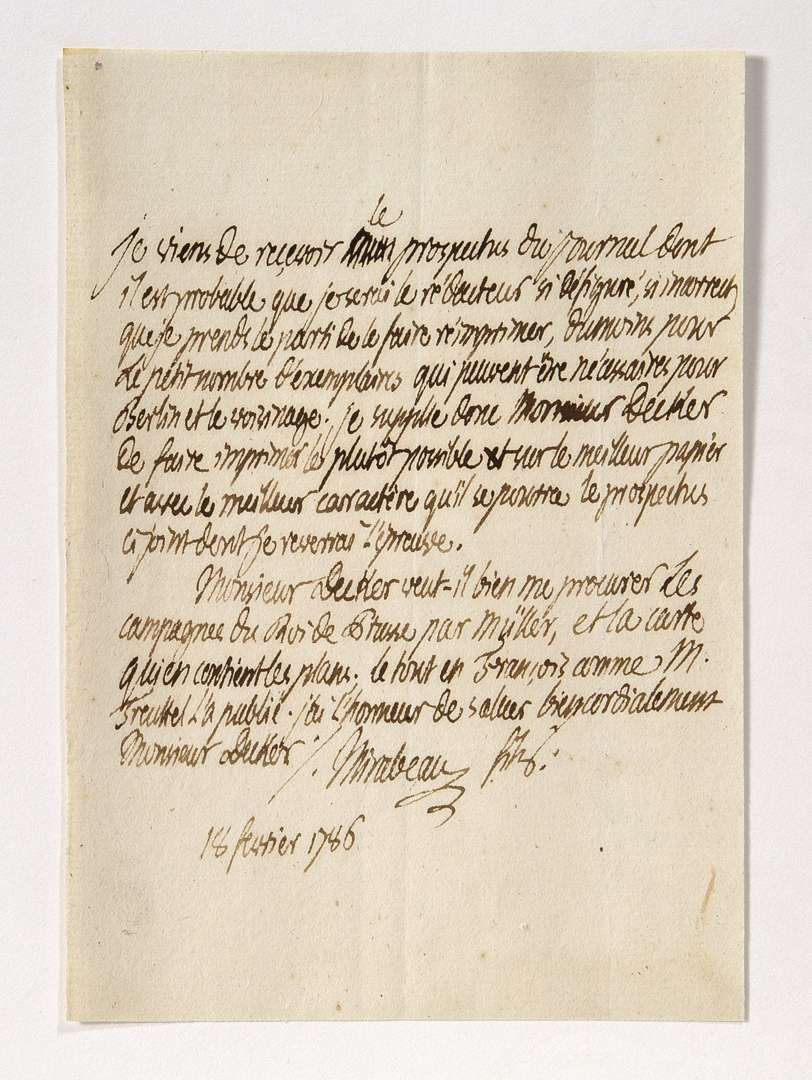 le
je viens de reçevoir prospectus du journal dont
il est probable que je serai le rédacteur si défiguré, si incorrect,
que je prends le parti de le faire réimprimer, dumoins pour
le petit nombre d'éxemplaires qui peuvent être nécessaires pour
Berlin et le voisinage. je supplie donc Monsieur Decker
de faire imprimer le plutôt possible et sur le meilleur papier
et avec le meilleur caractère qu'il se pourra le prospectus
ci joint dont je reverrai l'épreuve.
Monsieur Decker veut-il bien me procurer les
campagnes du Roi de Prusse par Müller, et la carte
qui en contient les plans. le tout en François comme M.
Treuttel l'a publié. j'ai l'honneur de saluer bien cordialement
Monsieur Decker ./. Mirabeau fils.
18 fevrier 1786